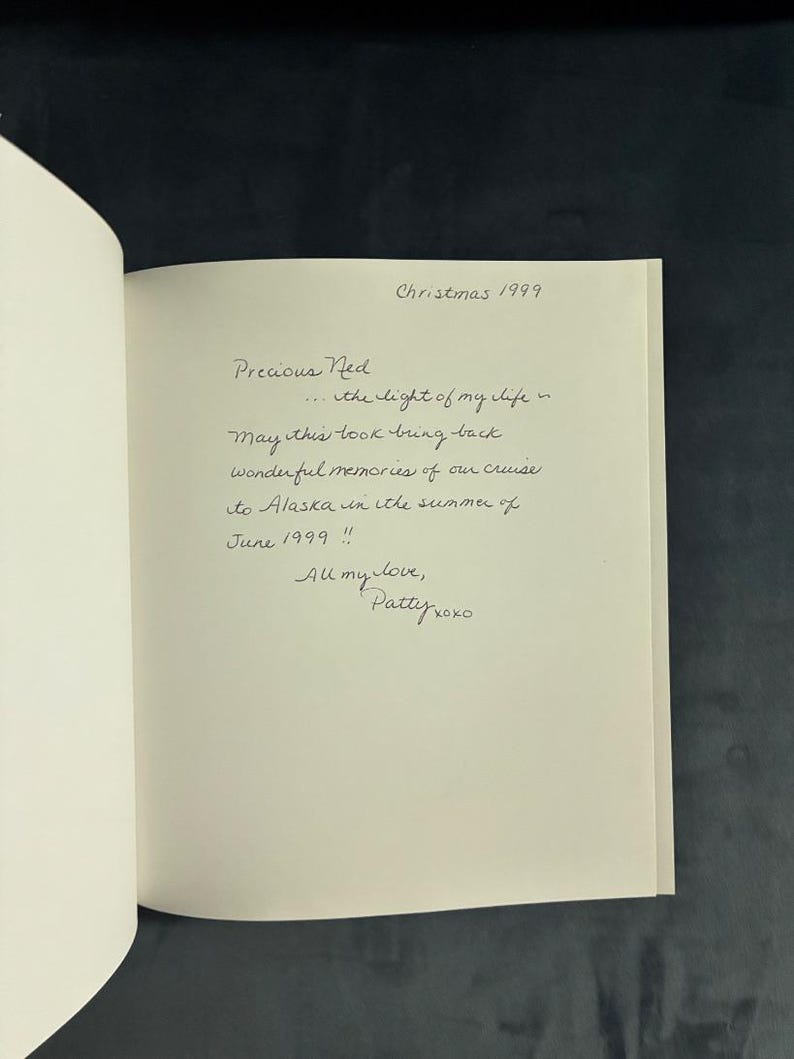 Christmas 1999
Precious Ned
... the light of my life ~
May this book bring back
wonderful memories of our cruise
to Alaska in the summer of
June 1999 !!
All my love,
Patty xoxo